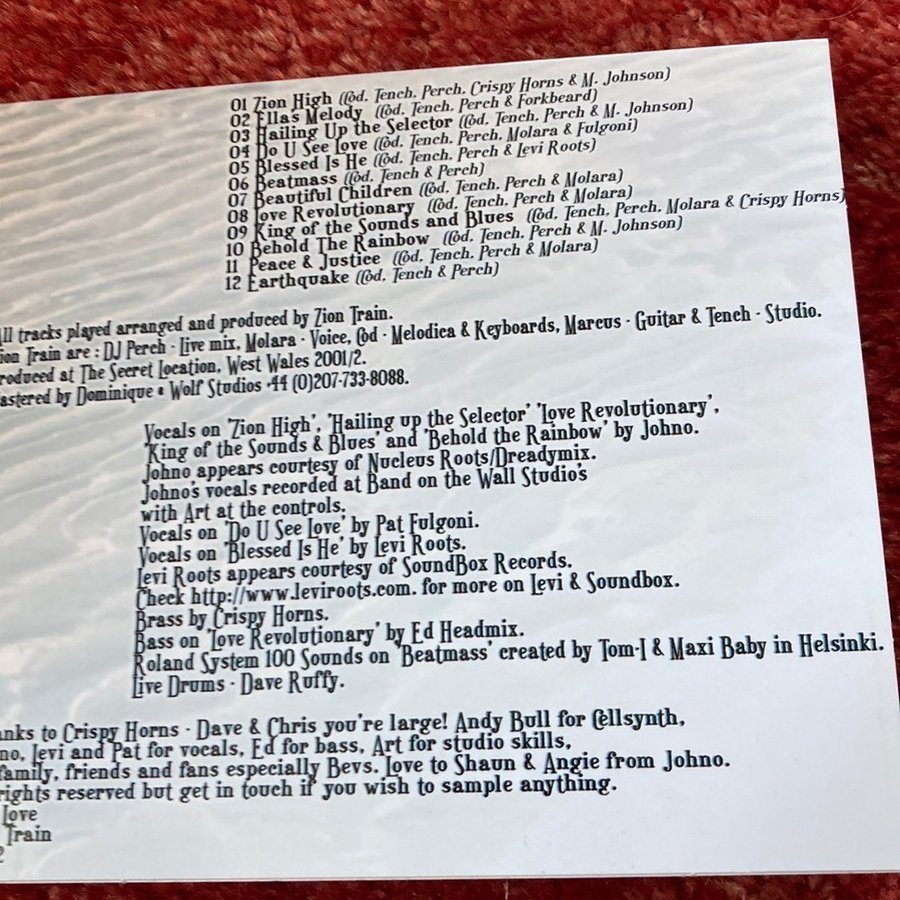 01 Zion High (Cod. Tench. Perch. Crispy Horns & M. Johnson)
02 Ellas Melody (Cod. Tench. Perch & Forkbeard)
03 Hailing Up the Selector (Cod. Tench. Perch & M. Johnson)
04 Do U See Love (Cod. Tench. Perch. Molara & Fulgoni)
05 Blessed Is He (Cod. Tench. Perch & Levi Roots)
06 Beatmass (Cod. Tench & Perch)
07 Beautiful Children (Cod. Tench. Perch & Molara)
08 Love Revolutionary (Cod. Tench. Perch & Molara)
09 King of the Sounds and Blues (Cod. Tench. Perch. Molara & Crispy Horns)
10 Behold The Rainbow (Cod. Tench. Perch & M. Johnson)
11 Peace & Justice (Cod. Tench. Perch & Molara)
12 Earthquake (Cod. Tench & Perch)
All tracks played arranged and produced by Zion Train.
ion Train are : DJ Perch - Live mix, Molara - Voice, Cod - Melodica & Keyboards, Marcus - Guitar & Tench - Studio.
roduced at The Secret Location, West Wales 2001/2.
astered by Dominique @ Wolf Studios +44 (0)207-733-8088.
Vocals on 'Zion High', 'Hailing up the Selector' 'Love Revolutionary',
'King of the Sounds & Blues' and 'Behold the Rainbow' by Johno.
Johno appears courtesy of Nucleus Roots/Dreadymix.
Johno's vocals recorded at Band on the Wall Studio's
with Art at the controls.
Vocals on 'Do U See Love' by Pat Fulgoni.
Vocals on 'Blessed Is He' by Levi Roots.
Levi Roots appears courtesy of SoundBox Records.
Check http://www.leviroots.com. for more on Levi & Soundbox.
Brass by Crispy Horns.
Bass on 'Love Revolutionary' by Ed Headmix.
Roland System 100 Sounds on 'Beatmass' created by Tom-I & Maxi Baby in Helsinki.
Live Drums - Dave Ruffy.
anks to Crispy Horns - Dave & Chris you're large! Andy Bull for Cellsynth,
no, Levi and Pat for vocals, Ed for bass, Art for studio skills,
family, friends and fans especially Bevs. Love to Shaun & Angie from Johno.
rights reserved but get in touch if you wish to sample anything.
Love
Train
2